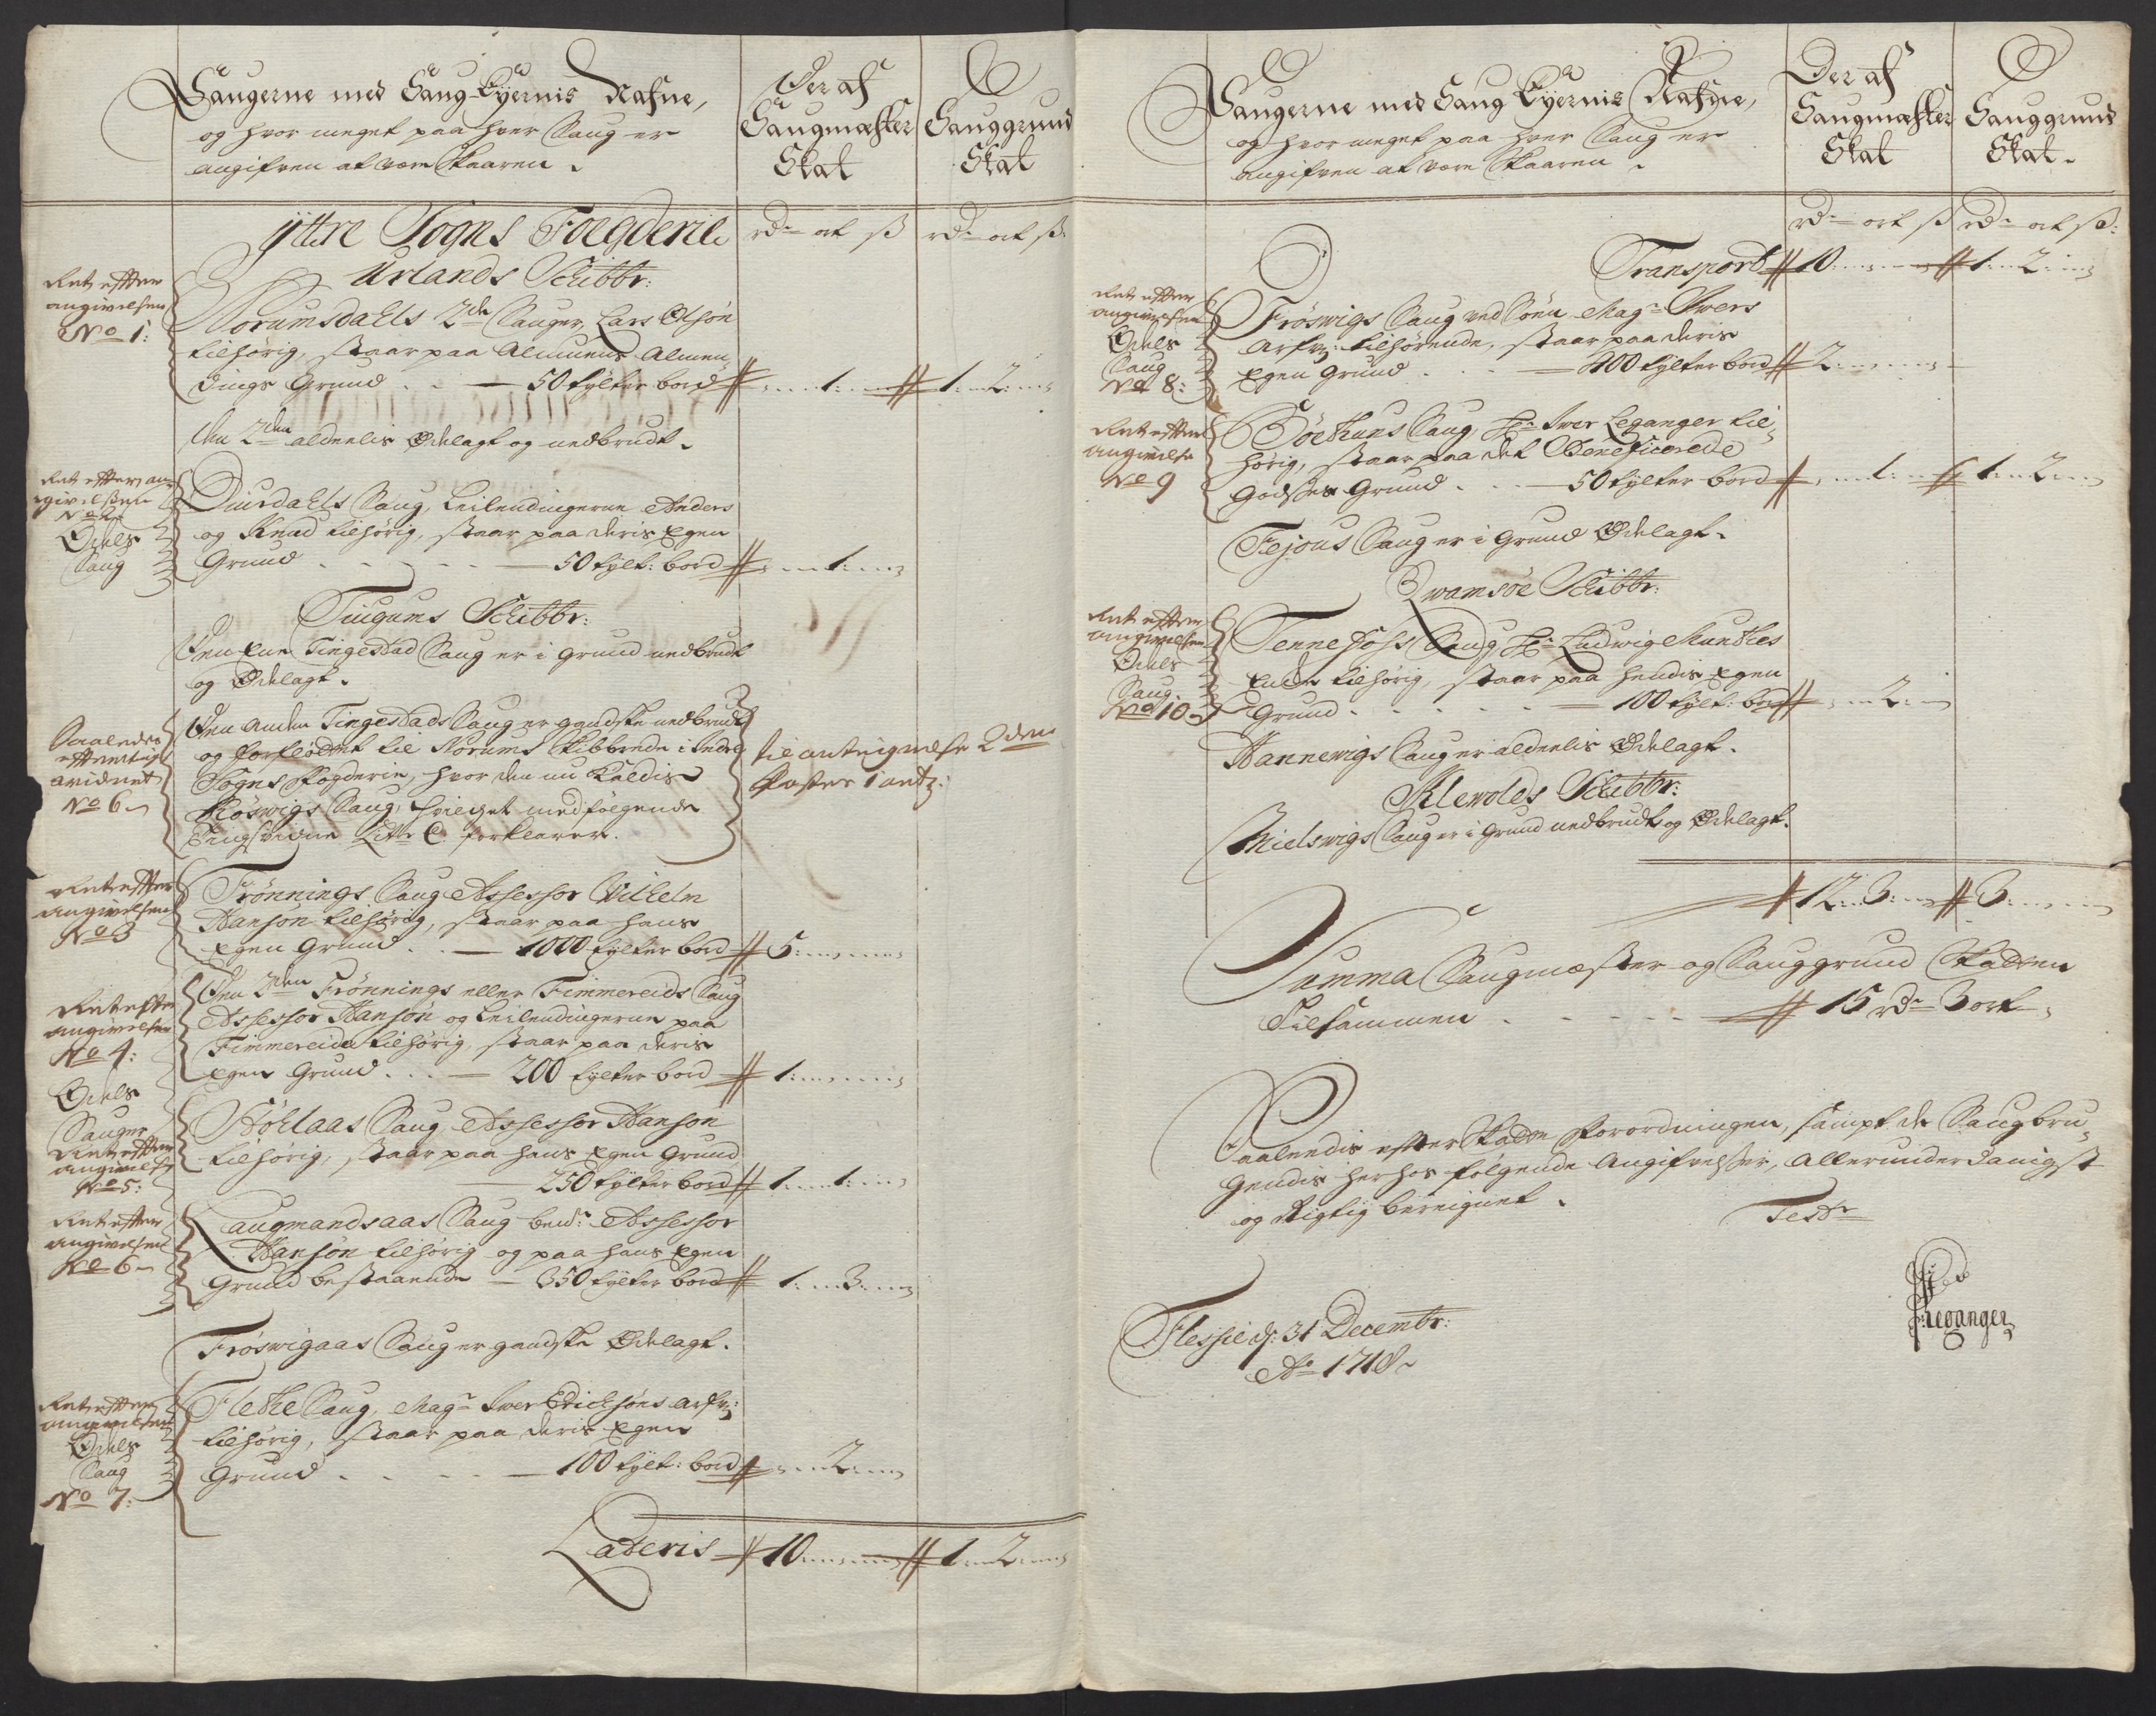 Saugerne med Saug-Eÿernis Nafne,
og hvor meget paa hver Saug er
angifven at være Skaaren.
Der af
Saugmæster
Skat
Sauggrund
Skat
ÿttre Sogns Foegderie
rdr ort ß rdr ort ß
Urlands Schibbr:
Ret efter
angivelsen
No 1:
Norumsdahls 2de Sauger, Lars Olsøn
tilhørig, staar paa Almuens Almen
dings Grund . . — 50 tÿlter bord # „ 1: „ # 1: 2: „
Den 2den aldeelis Ødelagt og nedbrudt.
Ret efter an-
givelsen
No 2
Odels
Saug
Diurdahls Saug, Leilendingerne Anders
og Knud tilhørig, staar paa deris Egen
Grund . . . . — 50 tÿlt: bord # „ 1: „
Tiugums Schibbr:
Den Eene Tingestad Saug er i Grund nedbrudt
og Ødelagt.
Saaledes
efter
avidnet
No 6
Den anden Tingestads Saug er gandske nedbrudt
og forfløttet til Norums Skibbrede i Indre
Sogns Fogderie, hvor den nu Kaldis
Røswigs Saug, hvilchet medfølgende
Tingsvidne Litr C. forklarer.
til antegnelse 2den
Poster 1 ant:
Ret efter
angivelsen
No 3
Frønnings Saug Assessor Wilhelm
Hansøn tilhørig, staar paa hans
Egen Grund . . — 1000 tÿlter bord # 5: „ „
Ret efter
angivelsen
No 4:
Den 2den Frønnings eller Fimmereids Saug
Assessor Hansøn og Leilendingerne paa
Fimmereide tilhørig, staar paa deris
Egen Grund . . . — 200 tÿlter bord # 1: „ „
Odels
Sauger
Ret efter
angivelse
No 5:
Støhlaas Saug Assessor Hansøn
tilhørig, staar paa hans Egen Grund
— 250 tÿlter bord # 1: 1: „
Ret efter
angivelsen
No 6
Laugmandsaas Saug bemte Assessor
Hansøn tilhørig og paa hans Egen
Grund bestaaende — 350 tÿlter bord # 1: 3: „
Frøswigaas Saug er gandske Ødelagt.
Ret efter
angivelsen
Odels
Saug
No 7:
Flethe Saug, Magr Iwer Erichsøns arfv:
tilhørig, staar paa deris Egen
Grund . . . . — 100 tÿlt: bord # „ 2: „
Lateris # 10: „ „ # 1: 2: „
Saugerne med Saug Eÿernis Nafne,
og hvor meget paa hver Saug er
angifven at være Skaaren.
Der af
Saugmæster
Skat
Sauggrund
Skat.
rdr ort ß rdr ort ß:
Transport # 10: „ „ # 1: 2: „
Ret efter
angivelsen
Odels
Saug
No 8:
Frøswigs Saug ved Søen Magr Iwers
Arfv: tilhørende, staar paa deris
Egen Grund . . . — 400 tÿlter bord # 2: „ „
Ret efter
angivelse
No 9
Bøethuns Saug, Hr Iwer Leganger til-
hørig, staar paa det Beneficerede
Godses Grund . . — 50 tÿlter bord # „ 1: „ # 1: 2: „
Fejous Saug er i Grund Ødelagt.
Qwamsøe Schibbr:
Ret efter
angivelsen
Odels
Saug.
No 10
Tennefoss Saug Hr Ludwig Munthes
Enke tilhørig, staar paa hendis Egen
Grund . . . . . — 100 tÿlt: bord # „ 2: „
Hannewigs Saug er aldeelis Ødelagt.
Klewolds Schibbr:
Thielswigs Saug er i Grund nedbrudt og Ødelagt.
# 12: 3: „ # 3: „ „
Summa Saugmæster og Sauggrund Skatten
Tilsammen . . . . . # 15 rdr 3 ort
Saaleedis efter Skatte Forordningen, sampt de Saugbru-
gendis herhos følgende Angifvelser, allerunderdanigst
og Rigtig bereignet.
Test
Flesjie d: 31 Decembr:
Ao 1718.
Leganger